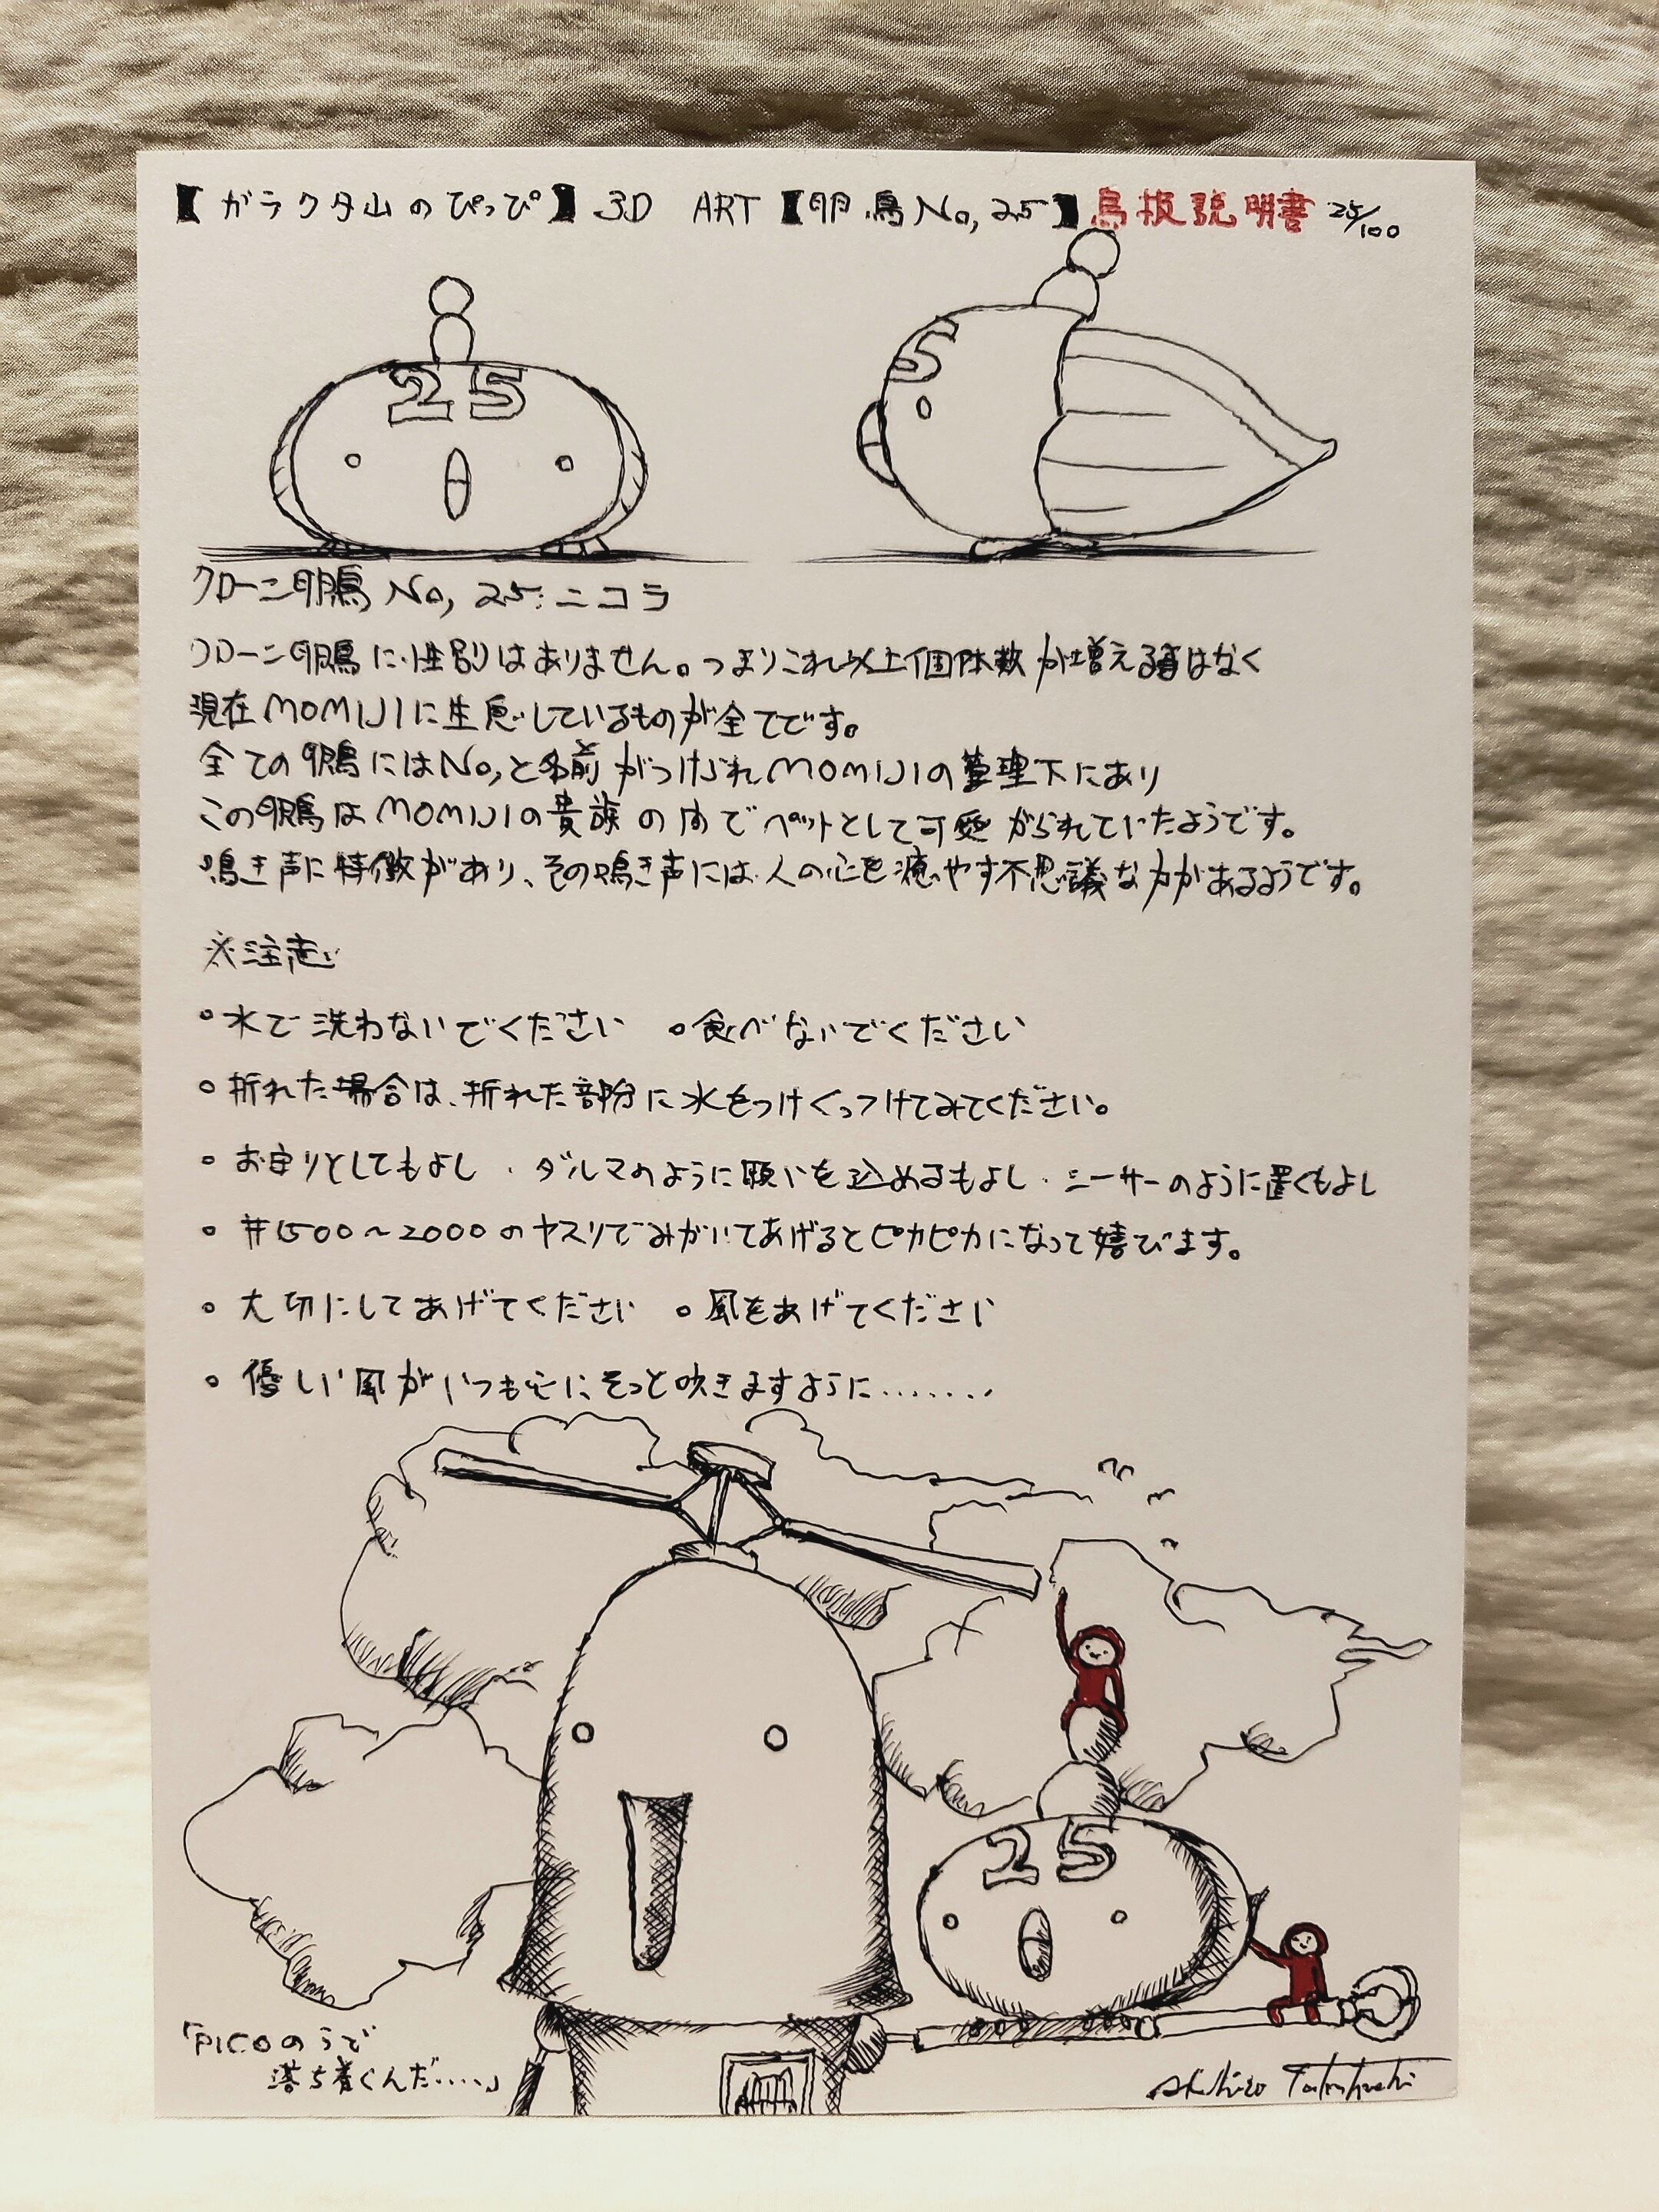 【ガラクタ山のぴっぴ】 3D ART 【卵鳥No,25】鳥扱説明書 25/100
25
5
クローン卵鳥 No, 25: ニコラ
クローン卵鳥に性別はありません。つまりこれ以上個体数が増える事はなく
現在MOMIJIに生息しているものが全てです。
全ての卵鳥にはNo,と名前がつけられMOMIJIの管理下にあり
この卵鳥はMOMIJIの貴族の中でペットとして可愛がられていたようです。
鳴き声に特徴があり、その鳴き声には人の心を癒やす不思議な力があるようです。
※注意
◦水で洗わないでください ◦食べないでください
◦折れた場合は、折れた部分に水をつけくっつけてみてください。
◦お守りとしてもよし・ダルマのように願いを込めるもよし・シーサーのように置くもよし
◦#1500〜2000のヤスリでみがいてあげるとピカピカになって嬉びます。
◦大切にしてあげてください ◦風をあげてください
◦優しい風がいつも心にそっと吹きますように........
25
「PICOのうで
落ち着くんだ....」